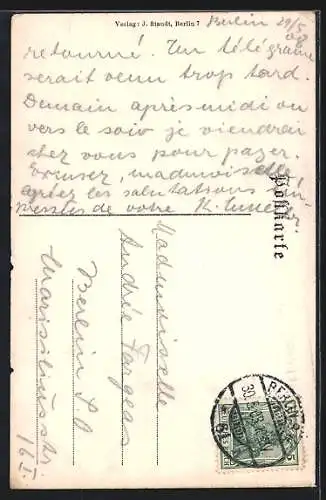 Verlag: J. Staudt, Berlin 7
Berlin 29/5
retourné. Un télégramme
serait venu trop tard.
Demain après midi ou
vers le soir je viendrai
chez vous pour payer.
Excusez, madmoiselle,
agréez les salutations em-
pressées de votre K.
Postkarte
Madmoiselle
Andrée Farges
Berlin S.O
16 I.
BERLIN
30.5.08